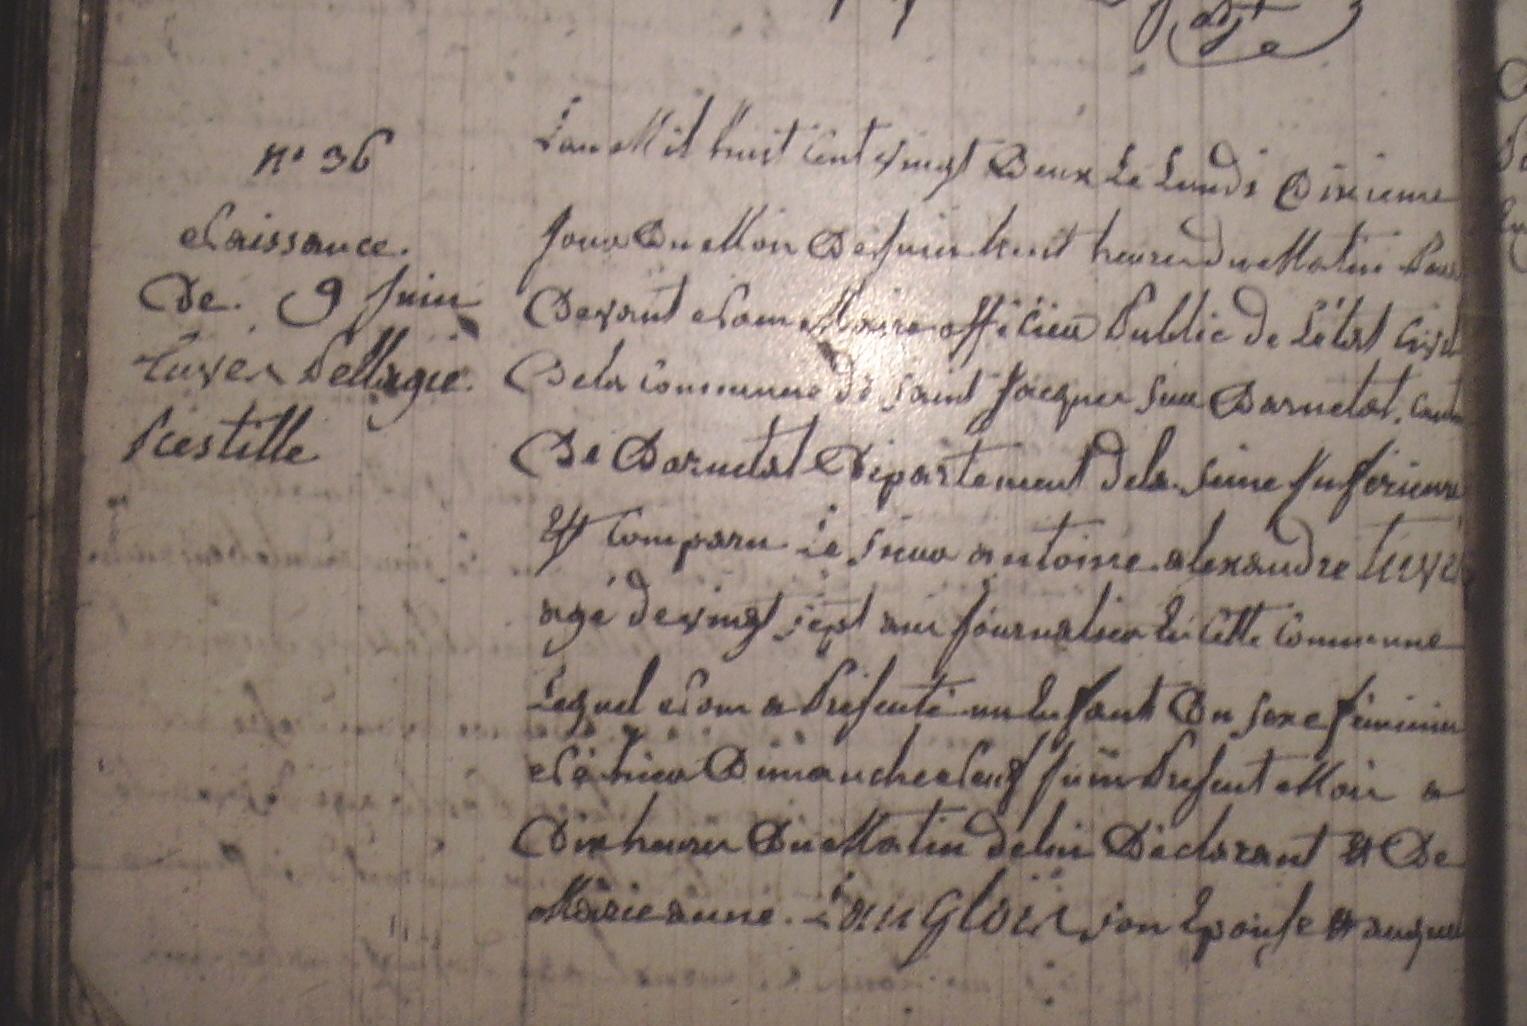 n° 36
Naissance.
De. 9 Juin
Tuvex Pellagie.
Prestille
L'an Mil huit Cent vingt Deux Le Lundi Dixieme
Jour Du Mois De Juin huit heures du Matin Par
Devant Nous Maire officier Public de L'état Civil
De la Commune de Saint Jacques sur Darnetal, Canton
De Darnetal Département de la Seine Inférieure
Est Comparu Le Sieur antoine alexandre
agé de vingt sept ans Journalier En Cette Commune
Lequel Nous a Présenté un Enfant Du sexe féminin
Né hier Dimanche Neuf Juin Présent Mois a
Dix heures Du Matin de lui Déclarant Et De
Marie anne. Langlois son Epouse Et auquel